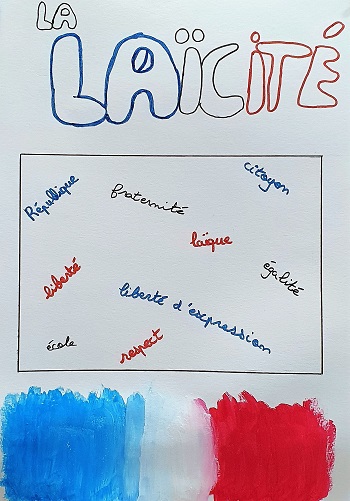 LA
LAÏCITÉ
citoyen
République
fraternité
laïque
égalité
liberté
liberté d'expression
école
respect